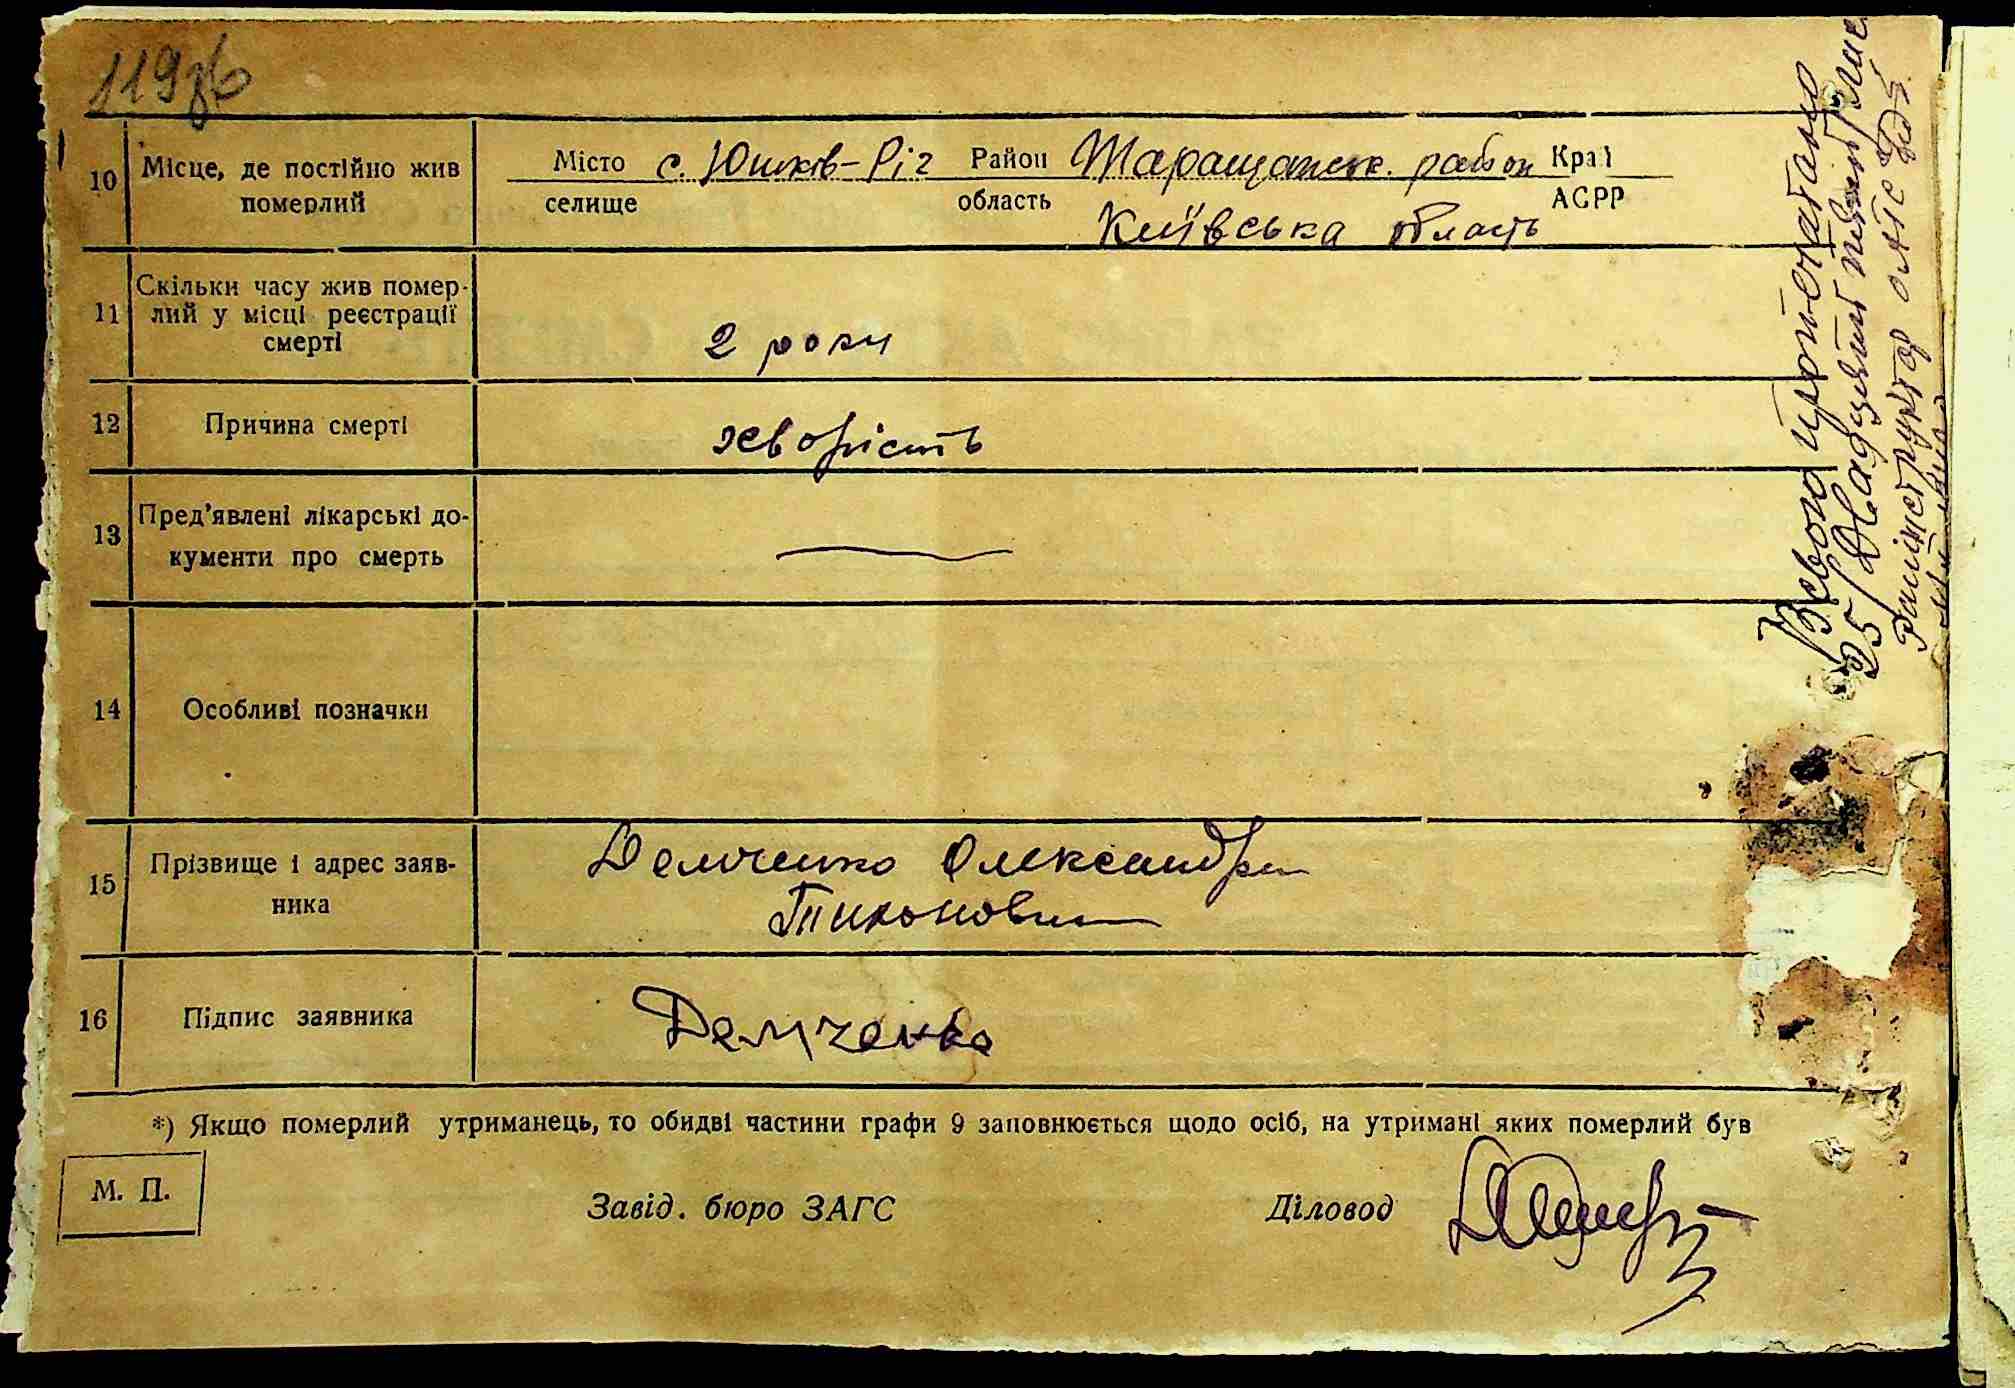 119зв
10 Місце, де постійно жив Місто с. Юшків-Ріг Район Таращанськ. район Краї
померлий селище область АСРР
Київська область
11 Скільки часу жив помер-
лий у місці реєстрації
смерті
2 роки
12 Причина смерті хворість
13 Пред'явлені лікарські до-
кументи про смерть
14 Особливі позначки
15 Прізвище і адрес заяв-
ника
Демченко Олександра
Тихоновна
16 Підпис заявника Демченко
*) Якщо померлий утриманець, то обидві частини графи 9 заповнюється щодо осіб, на утримані яких померлий був
М. П. Завід. бюро ЗАГС Діловод
Всього пронотовано
25 /Двадцять